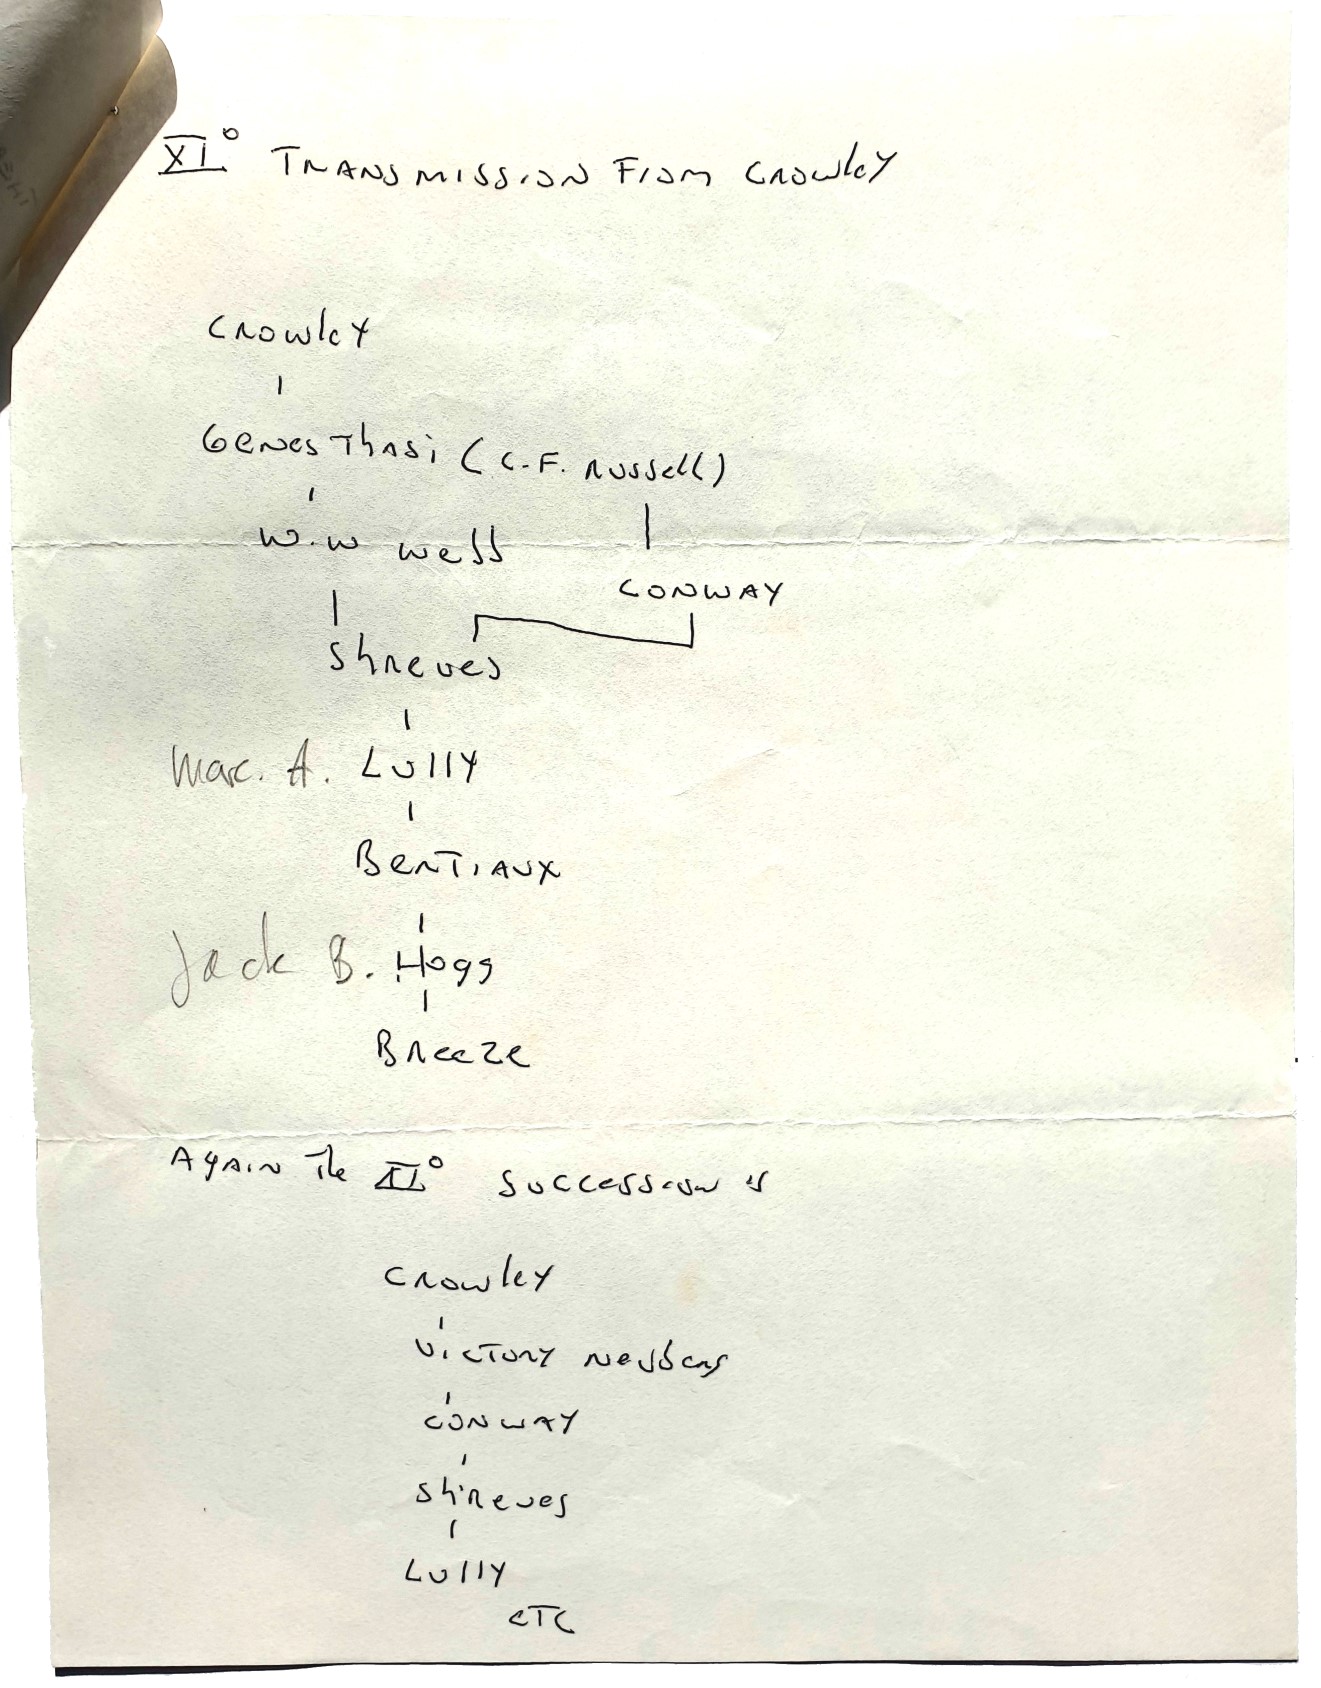 XI° TRANSMISSION FROM CROWLEY
CROWLEY
GENES THASI (C.F. RUSSELL)
W.W WEBB
CONWAY
SHREVES
Marc. A. LULLY
BERTIAUX
Jack B. HOGG
BREEZE
AGAIN THE XI° SUCCESSION IS
CROWLEY
VICTORY NEUBERG
CONWAY
SHREVES
LULLY
ETC